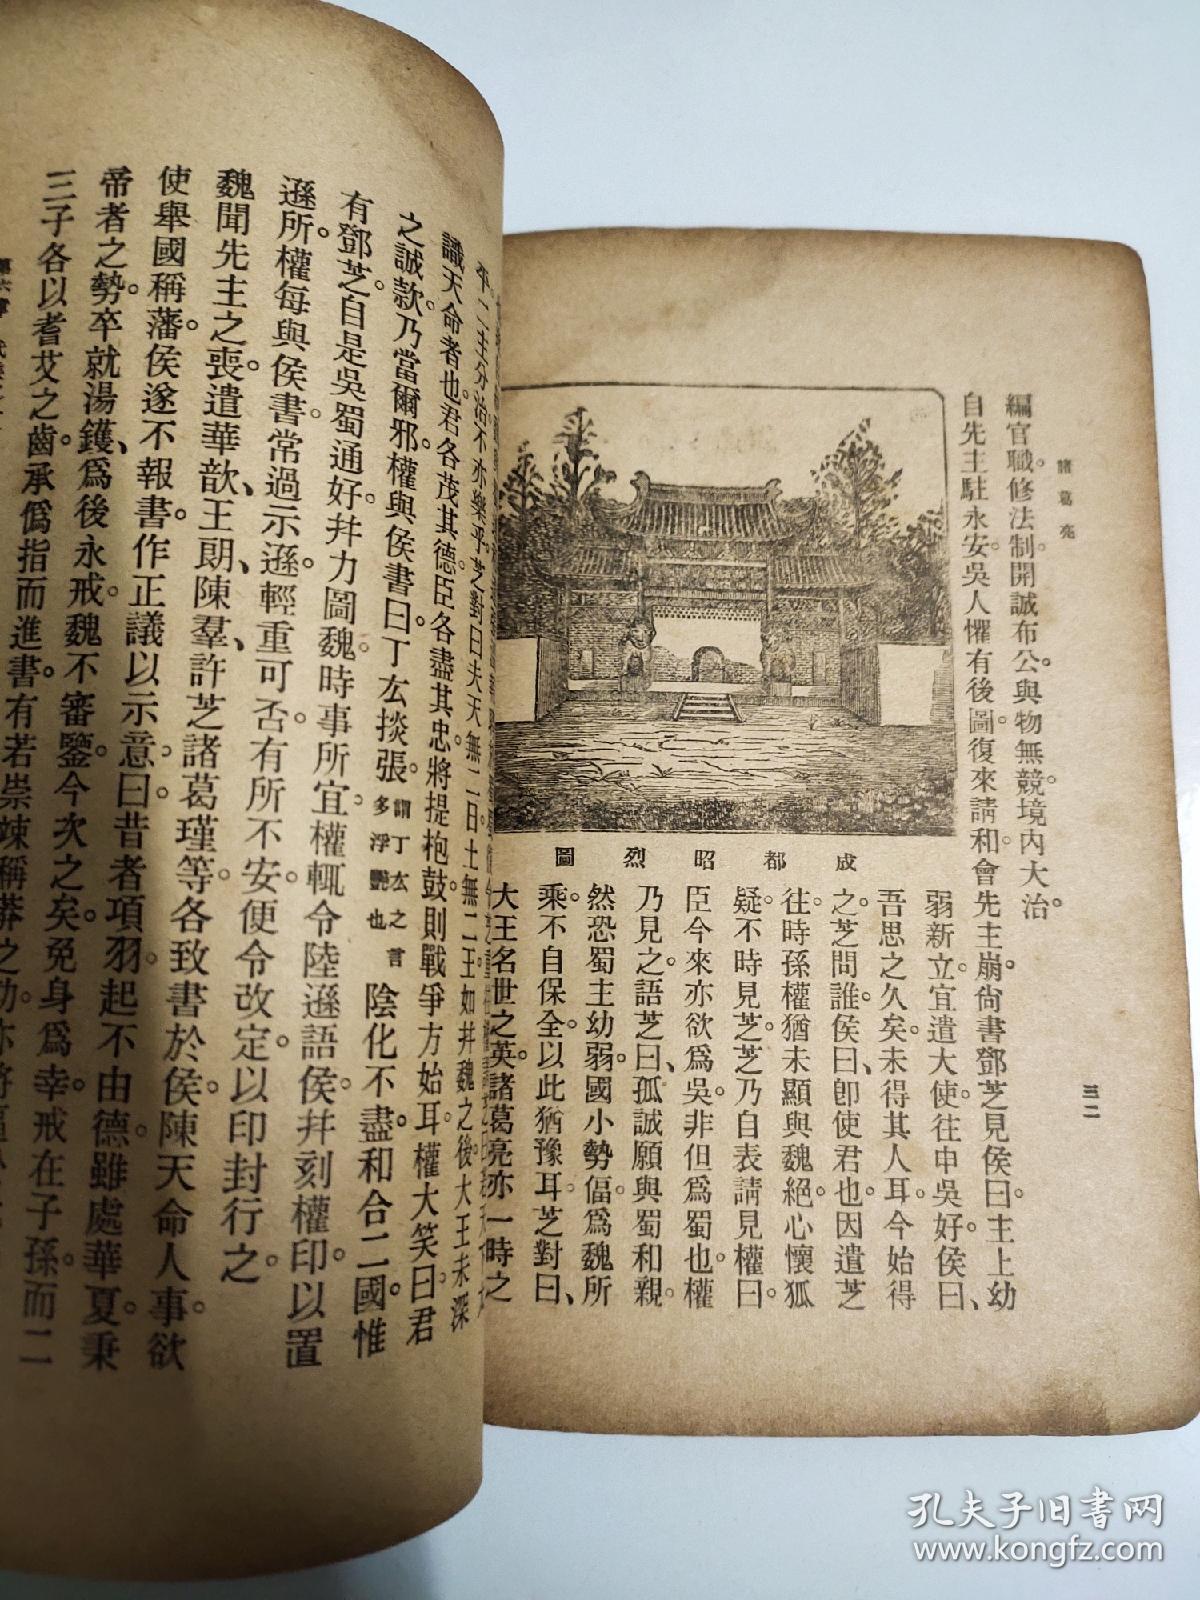 諸葛亮
三二
編官職。修法制。開誠布公。與物無競。境內大治。
自先主駐永安。吳人懼有後圖。復來請和。會先主崩。尙書鄧芝見侯曰。主上幼
弱新立。宜遣大使往申吳好。侯曰、
吾思之久矣。未得其人耳。今始得
之。芝問誰。侯曰、卽使君也。因遣芝
往。時孫權猶未顯與魏絕。心懷狐
疑。不時見芝。芝乃自表請見權曰。
臣今來亦欲爲吳。非但爲蜀也。權
乃見之。語芝曰、孤誠願與蜀和親。
然恐蜀主幼弱。國小勢偪。爲魏所
乘。不自保全。以此猶豫耳。芝對曰、
大王名世之英。諸葛亮亦一時之
成都昭烈圖
平。二主分治。不亦樂乎。芝對曰。夫天無二日。土無二王。如幷魏之後。大王未深
識天命者也。君各茂其德。臣各盡其忠。將提抱鼓。則戰爭方始耳。權大笑曰。君
之誠款。乃當爾邪。權與侯書曰。丁厷掞張謂丁厷之言多浮艷也陰化不盡。和合二國。惟
有鄧芝。自是吳蜀通好。幷力圖魏。時事所宜。權輒令陸遜語侯。幷刻權印以置
遜所。權每與侯書。常過示遜。輕重可否。有所不安。便令改定。以印封行之。
魏聞先主之喪。遣華歆、王朗、陳羣、許芝、諸葛瑾等。各致書於侯。陳天命人事。欲
使舉國稱藩。侯遂不報書。作正議以示意。曰。昔者項羽起不由德。雖處華夏。秉
帝者之勢。卒就湯鑊、爲後永戒。魏不審鑒。今次之矣。免身爲幸。戒在子孫。而二
三子各以耆艾之齒。承僞指而進書。有若崇竦稱莽之功。亦將偪
孔夫子旧书网
www.kongfz.com